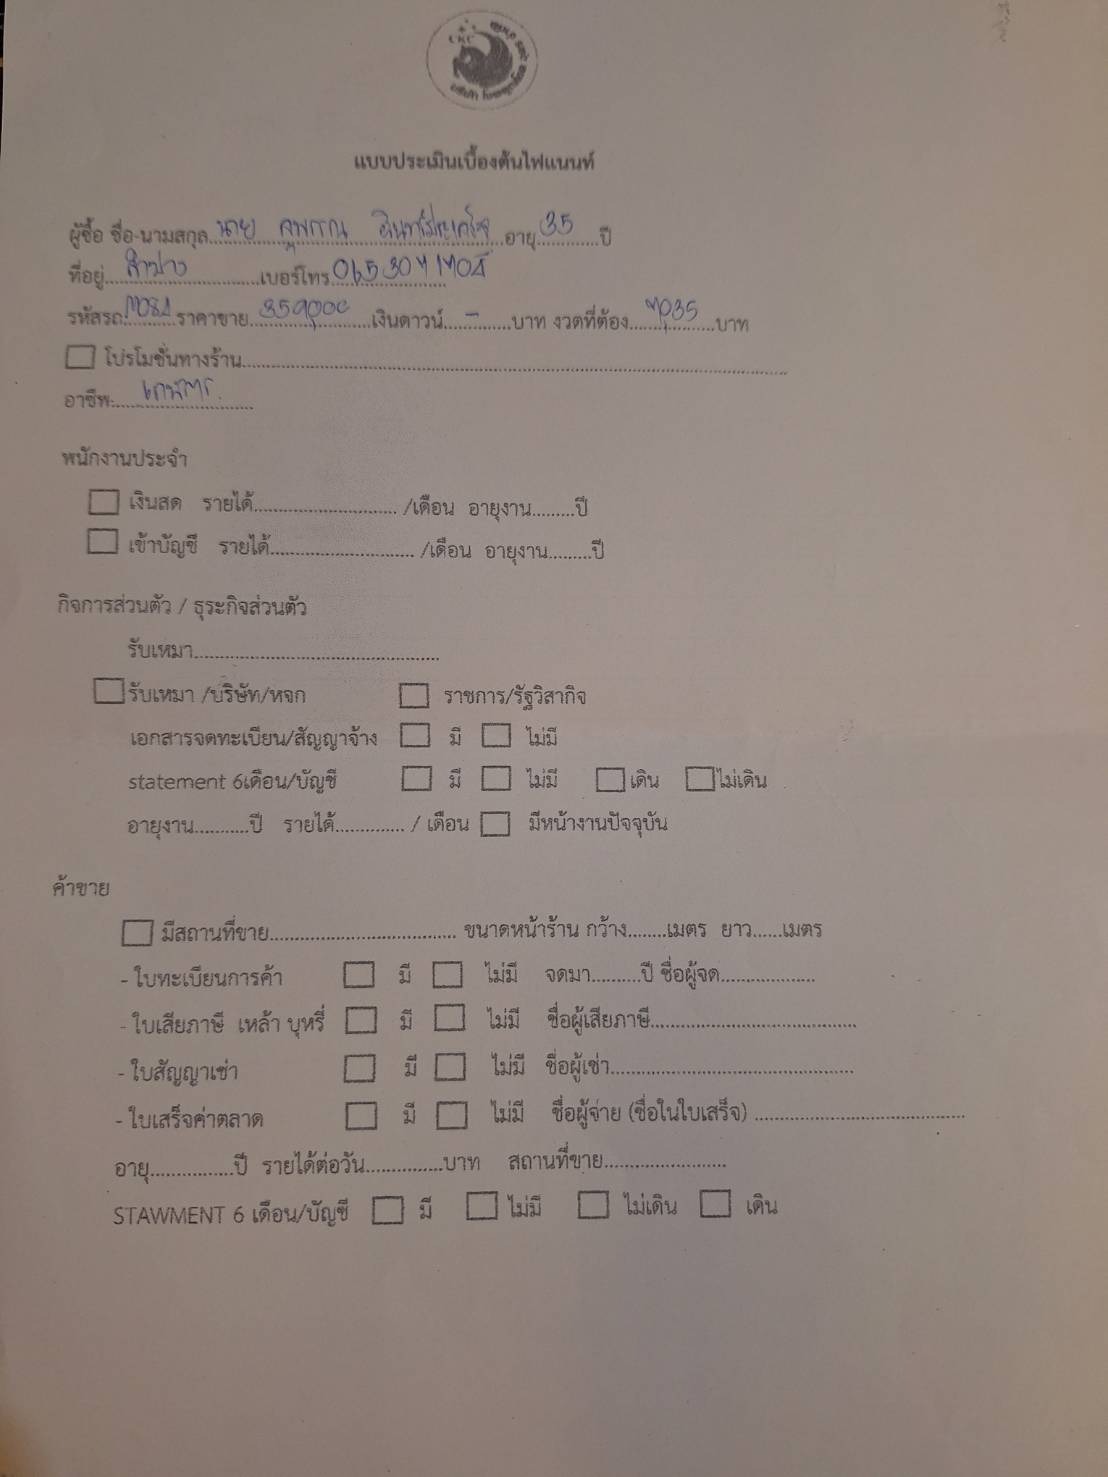 CKC
แบบประเมินเบื้องต้นไฟแนนท์
ผู้ซื้อ ชื่อ-นามสกุล นาย อายุ 35 ปี
ที่อยู่ ลำปาง เบอร์โทร
รหัสรถ ราคาขาย 359,000 เงินดาวน์ - บาท งวดที่ต้อง 7,035 บาท
โปรโมชั่นทางร้าน
อาชีพ: เกษตร
พนักงานประจำ
เงินสด รายได้ /เดือน อายุงาน ปี
เข้าบัญชี รายได้ /เดือน อายุงาน ปี
กิจการส่วนตัว / ธุระกิจส่วนตัว
รับเหมา
รับเหมา /บริษัท/หจก ราชการ/รัฐวิสากิจ
เอกสารจดทะเบียน/สัญญาจ้าง มี ไม่มี
statement 6เดือน/บัญชี มี ไม่มี เดิน ไม่เดิน
อายุงาน ปี รายได้ / เดือน มีหน้างานปัจจุบัน
ค้าขาย
มีสถานที่ขาย ขนาดหน้าร้าน กว้าง เมตร ยาว เมตร
- ใบทะเบียนการค้า มี ไม่มี จดมา ปี ชื่อผู้จด
- ใบเสียภาษี เหล้า บุหรี่ มี ไม่มี ชื่อผู้เสียภาษี
- ใบสัญญาเช่า มี ไม่มี ชื่อผู้เช่า
- ใบเสร็จค่าตลาด มี ไม่มี ชื่อผู้จ่าย (ชื่อในใบเสร็จ)
อายุ ปี รายได้ต่อวัน บาท สถานที่ขาย
STAWMENT 6 เดือน/บัญชี มี ไม่มี ไม่เดิน เดิน